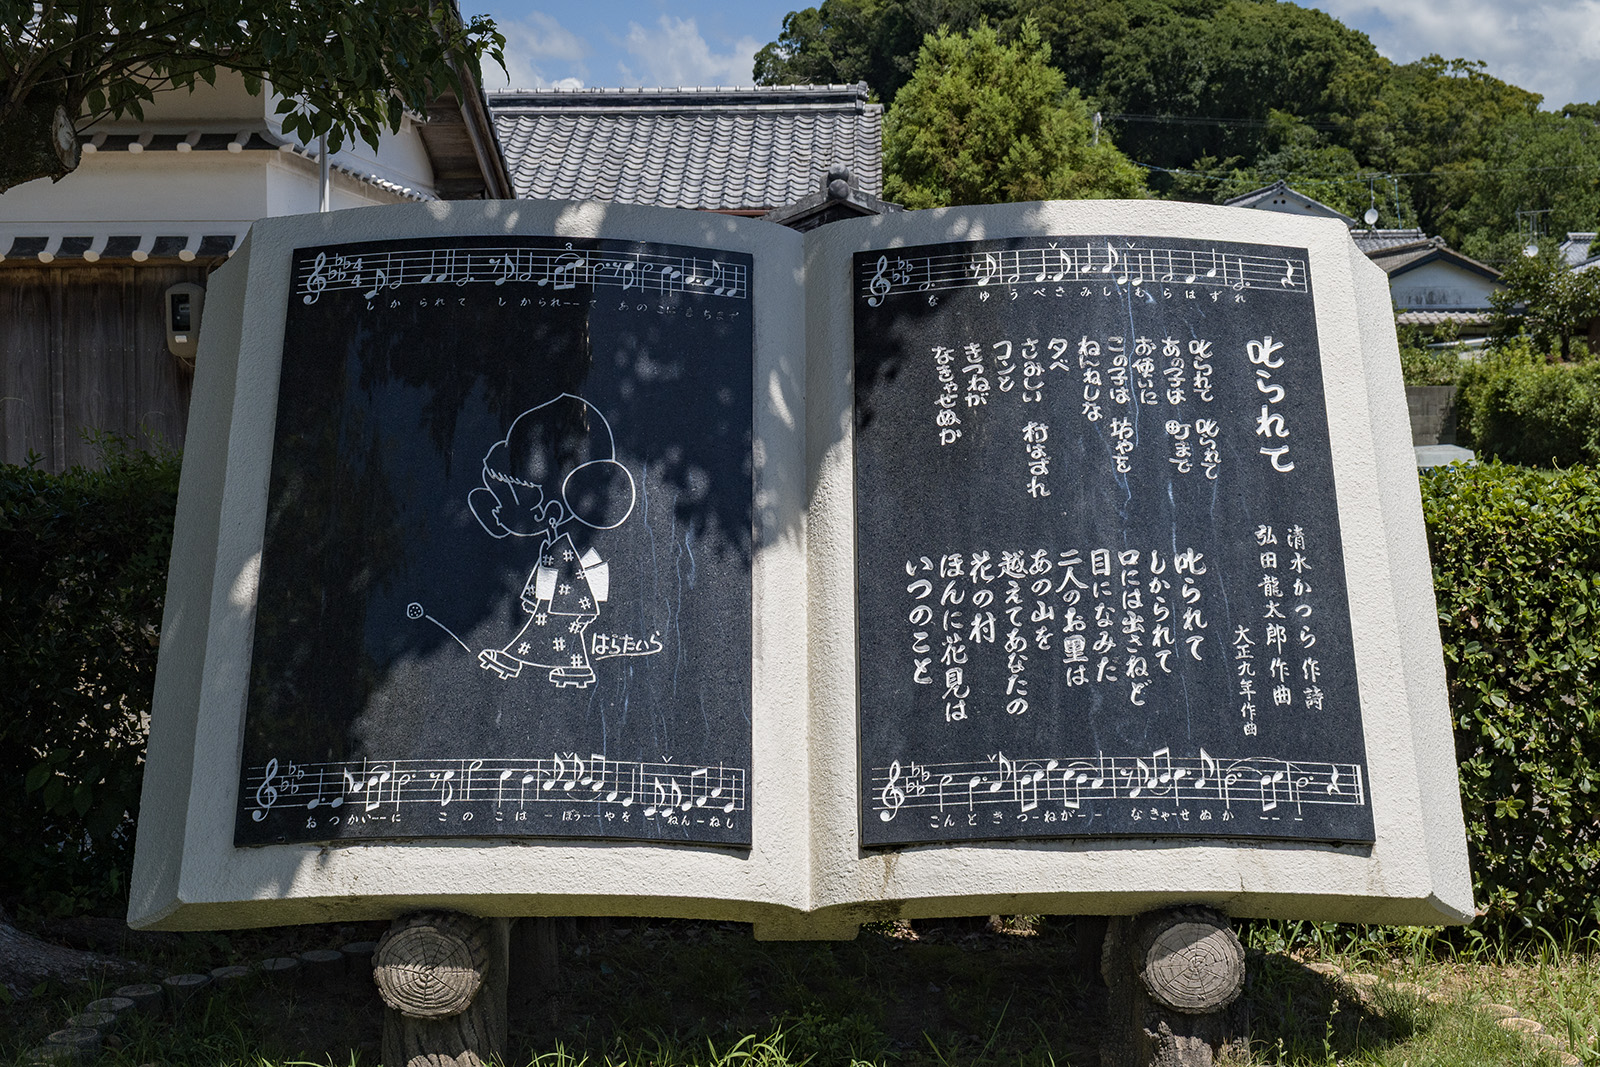 しかられて しかられーーて あのこはまちまで
はらたいら
おつかいーーに このこは ーぼうーーやを ーねんーねし
な ゆうべさみしいむらはずれ
叱られて
清水かつら作詩
弘田龍太郎作曲
大正九年作曲
叱られて 叱られて
あの子は 町まで
お使いに
この子は 坊やを
ねんねしな
夕べ
さみしい 村はずれ
コンと
きつねが
なきゃせぬか
叱られて
しかられて
口には出さねど
目になみだ
二人のお里は
あの山を
越えてあなたの
花の村
ほんに花見は
いつのこと
こんときつーねがーー なきゃーせぬか ーーー